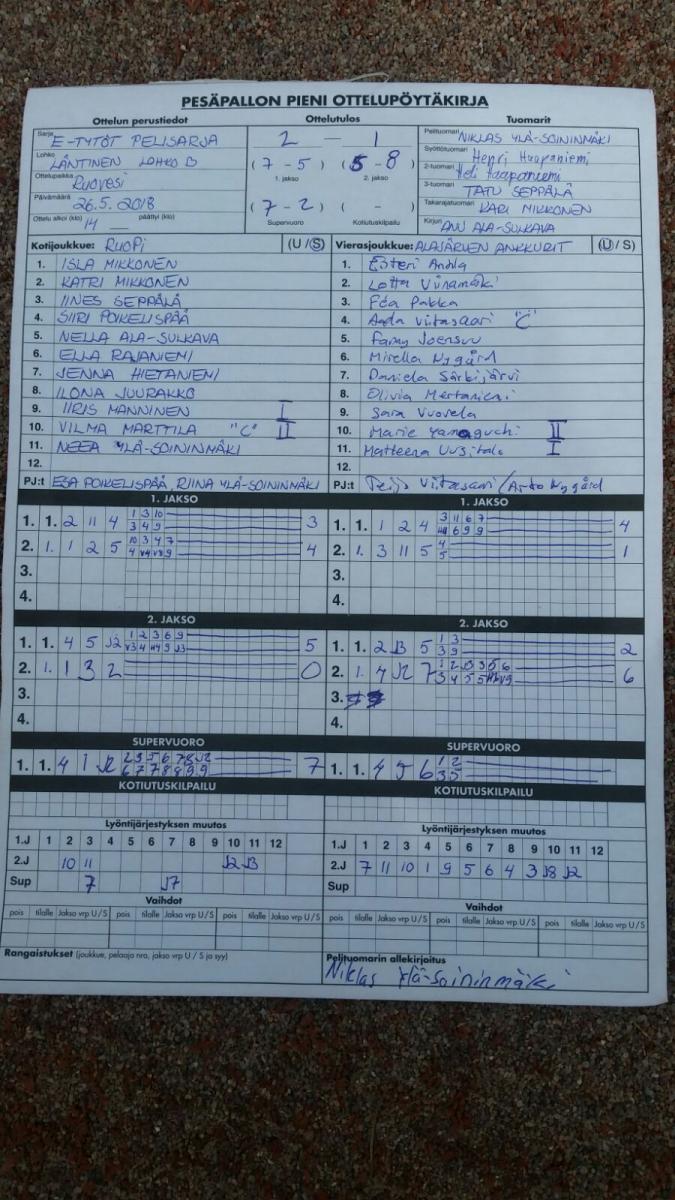 PESÄPALLON PIENI OTTELUPÖYTÄKIRJA
Ottelun perustiedot
Sarja E-TYTÖT PELISARJA
Lohko LÄNTINEN LOHKO B
Ottelupaikka Ruovesi
Päivämäärä 26.5.2018
Ottelu alkoi (klo) 14 päättyi (klo)
Ottelutulos
2 – 1
(7 - 5) (5 - 8)
1. jakso 2. jakso
(7 - 2) ( - )
Supervuoro Kotiutuskilpailu
Tuomarit
Pelituomari NIKLAS YLÄ-SOININMÄKI
Syöttötuomari Henri Haapaniemi
2-tuomari Heli Haapaniemi
3-tuomari TATU SEPPÄLÄ
Takarajatuomari KARI MIKKONEN
Kirjuri ANU ALA-SULKAVA
Kotijoukkue: RUOPI (U/S)
1. ISLA MIKKONEN
2. KATRI MIKKONEN
3. IINES SEPPÄLÄ
4. SIIRI POIKELISPÄÄ
5. NELLA ALA-SULKAVA
6. ELLA RAJANIEMI
7. JENNA HIETANIEMI
8. ILONA JUURAKKO
9. IIRIS MANNINEN I
10. VILMA MARTTILA "C" II
11. NEEA YLÄ-SOININMÄKI
12.
PJ:t ESA POIKELISPÄÄ, RIINA YLÄ-SOININMÄKI
Vierasjoukkue: ALAJÄRVEN ANKKURIT (U/S)
1. Esteri
2. Lotta Viinamäki
3. Eea Pakka
4. Aada Viitasaari "C"
5. Fanny Joensuu
6. Mirella Nygård
7. Daniela Särkijärvi
8. Olivia Mertaniemi
9. Sara Vuorela
10. Marie Yamaguchi II
11. Matteena Uusitalo I
12.
PJ:t Teijo Viitasaari / Arto Nygård
1. JAKSO
1. 1. 2 11 4 1 3 10 3
3 4 9
2. 1. 1 2 5 10 3 4 7 4
3.
4.
1. JAKSO
1. 1. 1 2 4 3 11 6 7 4
6 9 9
2. 1. 3 11 5 4 1
5
3.
4.
2. JAKSO
1. 1. 4 5 J2 1 2 3 6 9 5
2. 1. 1 3 2 0
3.
4.
2. JAKSO
1. 1. 2 J3 5 1 3 2
3 9
2. 1. 4 J2 7 6
3.
4.
SUPERVUORO
1. 1. 4 1 J2 2 3 5 6 7 8 J2 7
6 7 7 8 8 9 9
SUPERVUORO
1. 1. 4 5 6 1 2
3 5
KOTIUTUSKILPAILU
KOTIUTUSKILPAILU
Lyöntijärjestyksen muutos
1.J 1 2 3 4 5 6 7 8 9 10 11 12
2.J 10 11 J2 J3
Sup 7 J7
Lyöntijärjestyksen muutos
1.J 1 2 3 4 5 6 7 8 9 10 11 12
2.J 7 11 10 1 9 5 6 4 3 J8 J2
Sup
Vaihdot
pois tilalle Jakso vrp U/S pois tilalle Jakso vrp U/S pois tilalle Jakso vrp U/S
Vaihdot
pois tilalle Jakso vrp U/S pois tilalle Jakso vrp U/S pois tilalle Jakso vrp U/S
Rangaistukset (joukkue, pelaaja nro, jakso vrp U / S ja syy)
Pelituomarin allekirjoitus
Niklas Ylä-Soininmäki